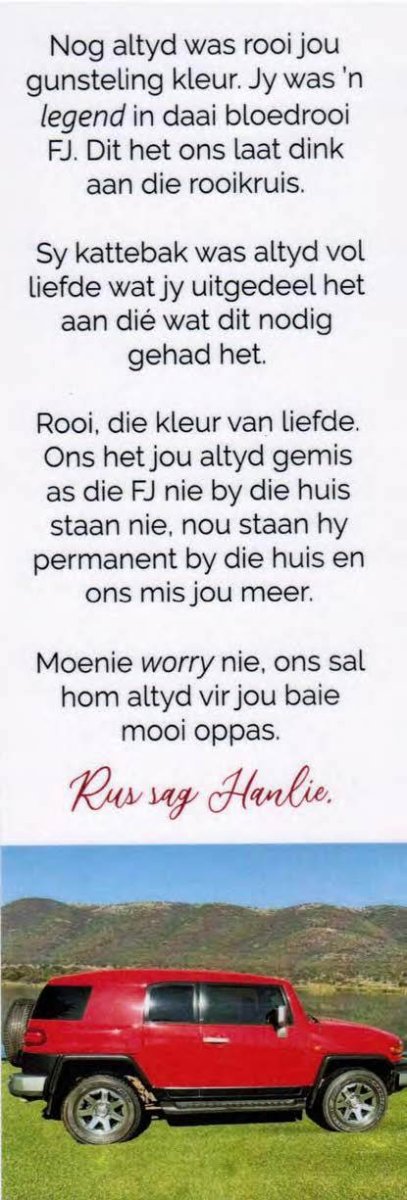 Nog altyd was rooi jou
gunsteling kleur. Jy was 'n
legend in daai bloedrooi
FJ. Dit het ons laat dink
aan die rooikruis.
Sy kattebak was altyd vol
liefde wat jy uitgedeel het
aan dié wat dit nodig
gehad het.
Rooi, die kleur van liefde.
Ons het jou altyd gemis
as die FJ nie by die huis
staan nie, nou staan hy
permanent by die huis en
ons mis jou meer.
Moenie worry nie, ons sal
hom altyd vir jou baie
mooi oppas.
Rus sag Hanlie.